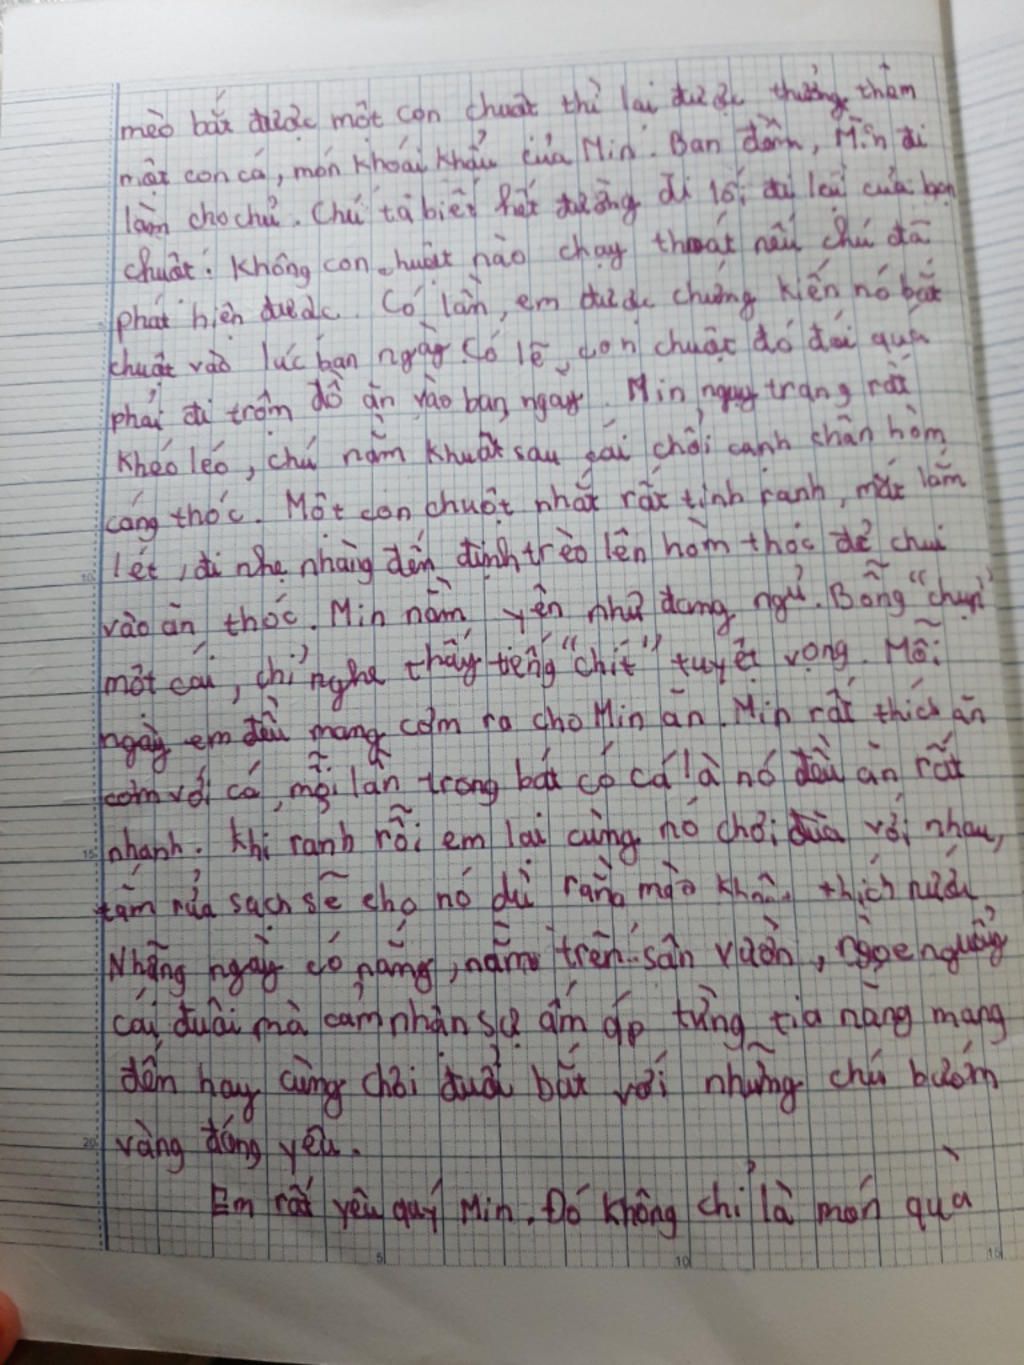 mèo bắt được một con chuột thì lại được thưởng thêm
một con cá, món khoái khẩu của Min. Ban đêm, Min đi
làm cho chủ. Chú ta biết hết đường đi lối, đi lại của bọn
chuột. Không con chuột nào chạy thoát nếu chú đã
phát hiện được. Có lần, em được chứng kiến nó bắt
chuột vào lúc ban ngày. Có lẽ, con chuột đó đói quá
phải đi trộm đồ ăn vào ban ngày. Min ngụy trang rất
khéo léo, chú nằm khuất sau cái chổi cạnh chân hòm
cáng thóc. Một con chuột nhắt rất tinh ranh, mắt lấm
lét, đi nhẹ nhàng đến định trèo lên hòm thóc để chui
vào ăn thóc. Min nằm yên như đang ngủ. Bỗng
một cái, chỉ nghe thấy tiếng "chít" tuyệt vọng. Mỗi
ngày em đều mang cơm ra cho Min ăn. Min rất thích ăn
cơm với cá, mỗi lần trong bát có cá là nó đều ăn rất
nhanh. Khi ranh rỗi em lại cùng nó chơi đùa với nhau,
tắm rửa sạch sẽ cho nó dù rằng mèo không thích nước
Những ngày có nắng, nằm trên sân vườn, ngoe nguẩy
cái đuôi mà cảm nhận sự ấm áp từng tia nắng mang
đến hay cùng chơi đuổi bắt với những chú bướm
vàng đáng yêu.
Em rất yêu quý Min. Đó không chỉ là món quà